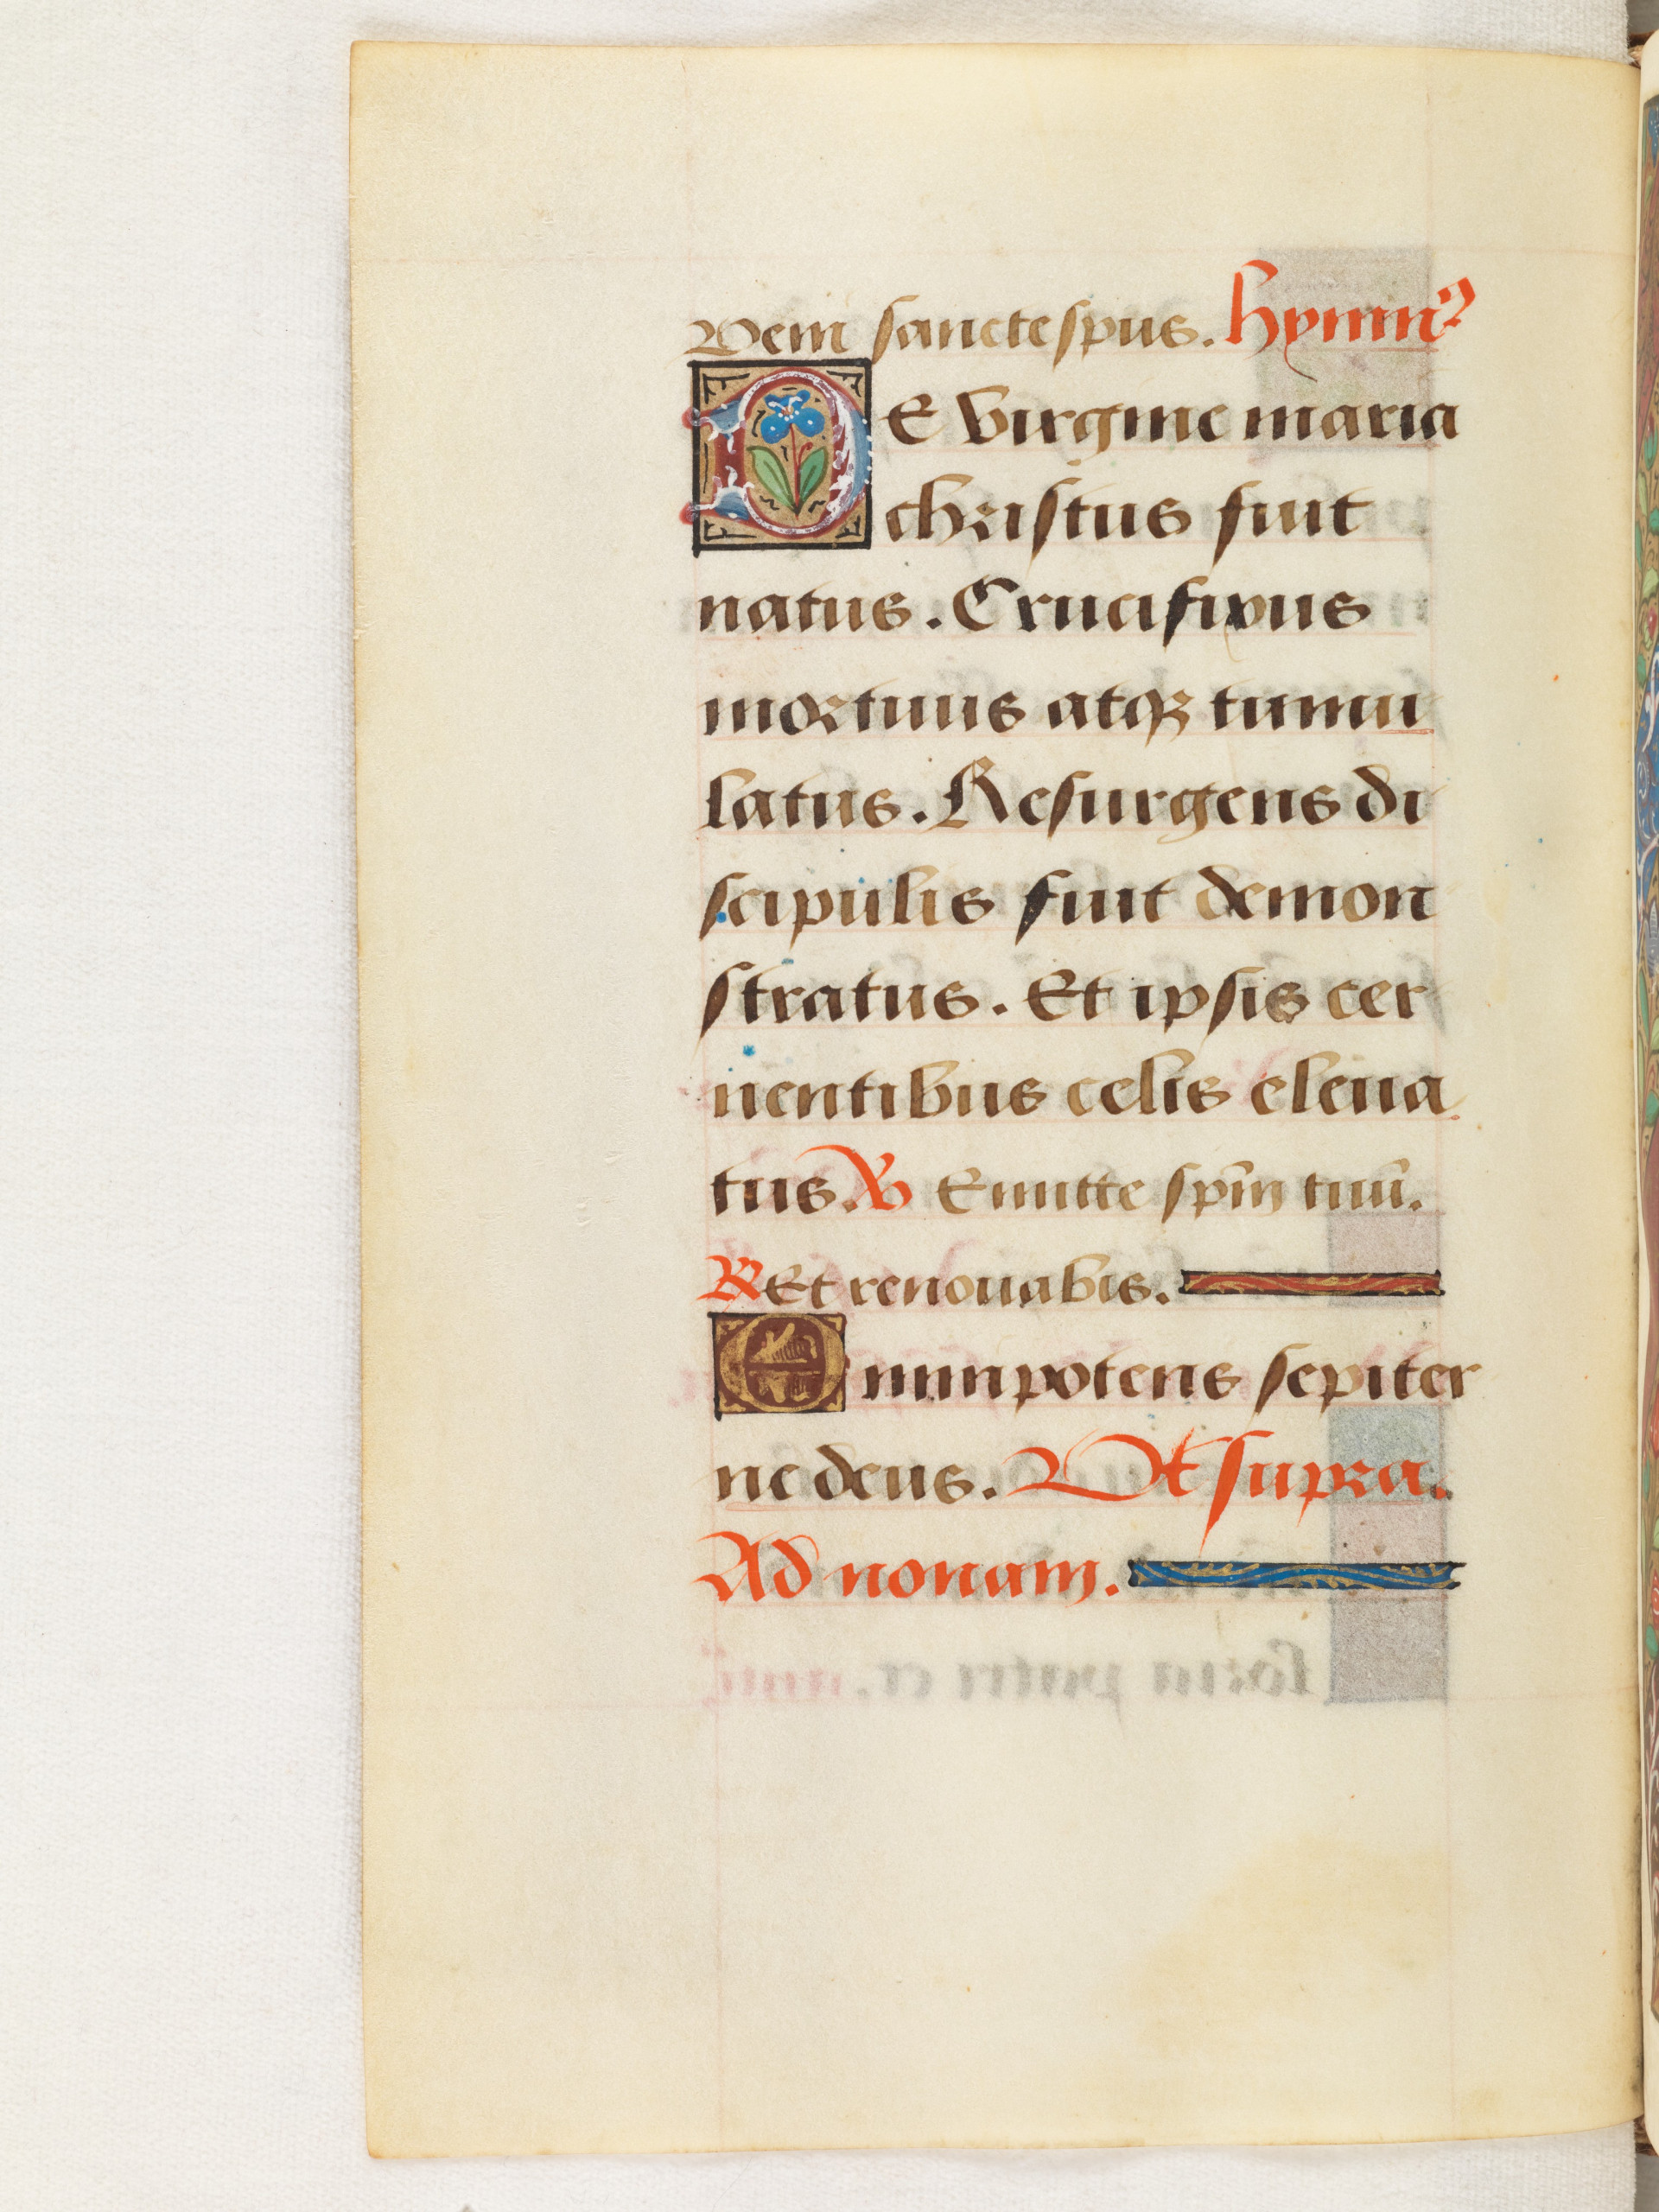 Veni sancte spūs. hymnꝰ
DE virgine maria
christus fuit
natus. Crucifixus
mortuus atqꝫ tumu
latus. Resurgens di
scipulis fuit demon
stratus. Et ipsis cer
nentibus celis eleua
tus. ℣ Emitte spm̄ tuū.
℟ Et renouabis.
Omnipotens sepiter
ne deus. Vt supra.
Ad nonam.